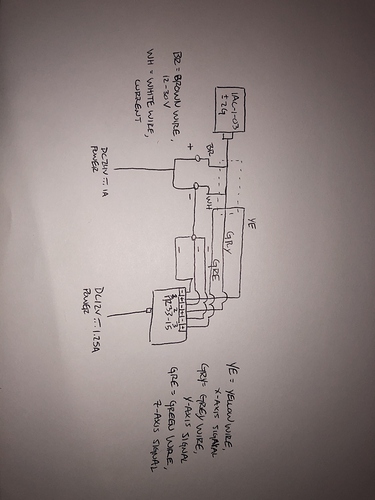 YE
IAC-I-03
± 2G
GRY
GRE
BR
WH
+
-
-
-
-
BR = BROWN WIRE,
12-30V
WH = WHITE WIRE,
CURRENT
DC24V ⎓ 1A
POWER
DC12V ⎓ 1.25A
POWER
YE = YELLOW WIRE,
X-AXIS SIGNAL
GRY = GREY WIRE,
Y-AXIS SIGNAL
GRE = GREEN WIRE,
Z-AXIS SIGNAL